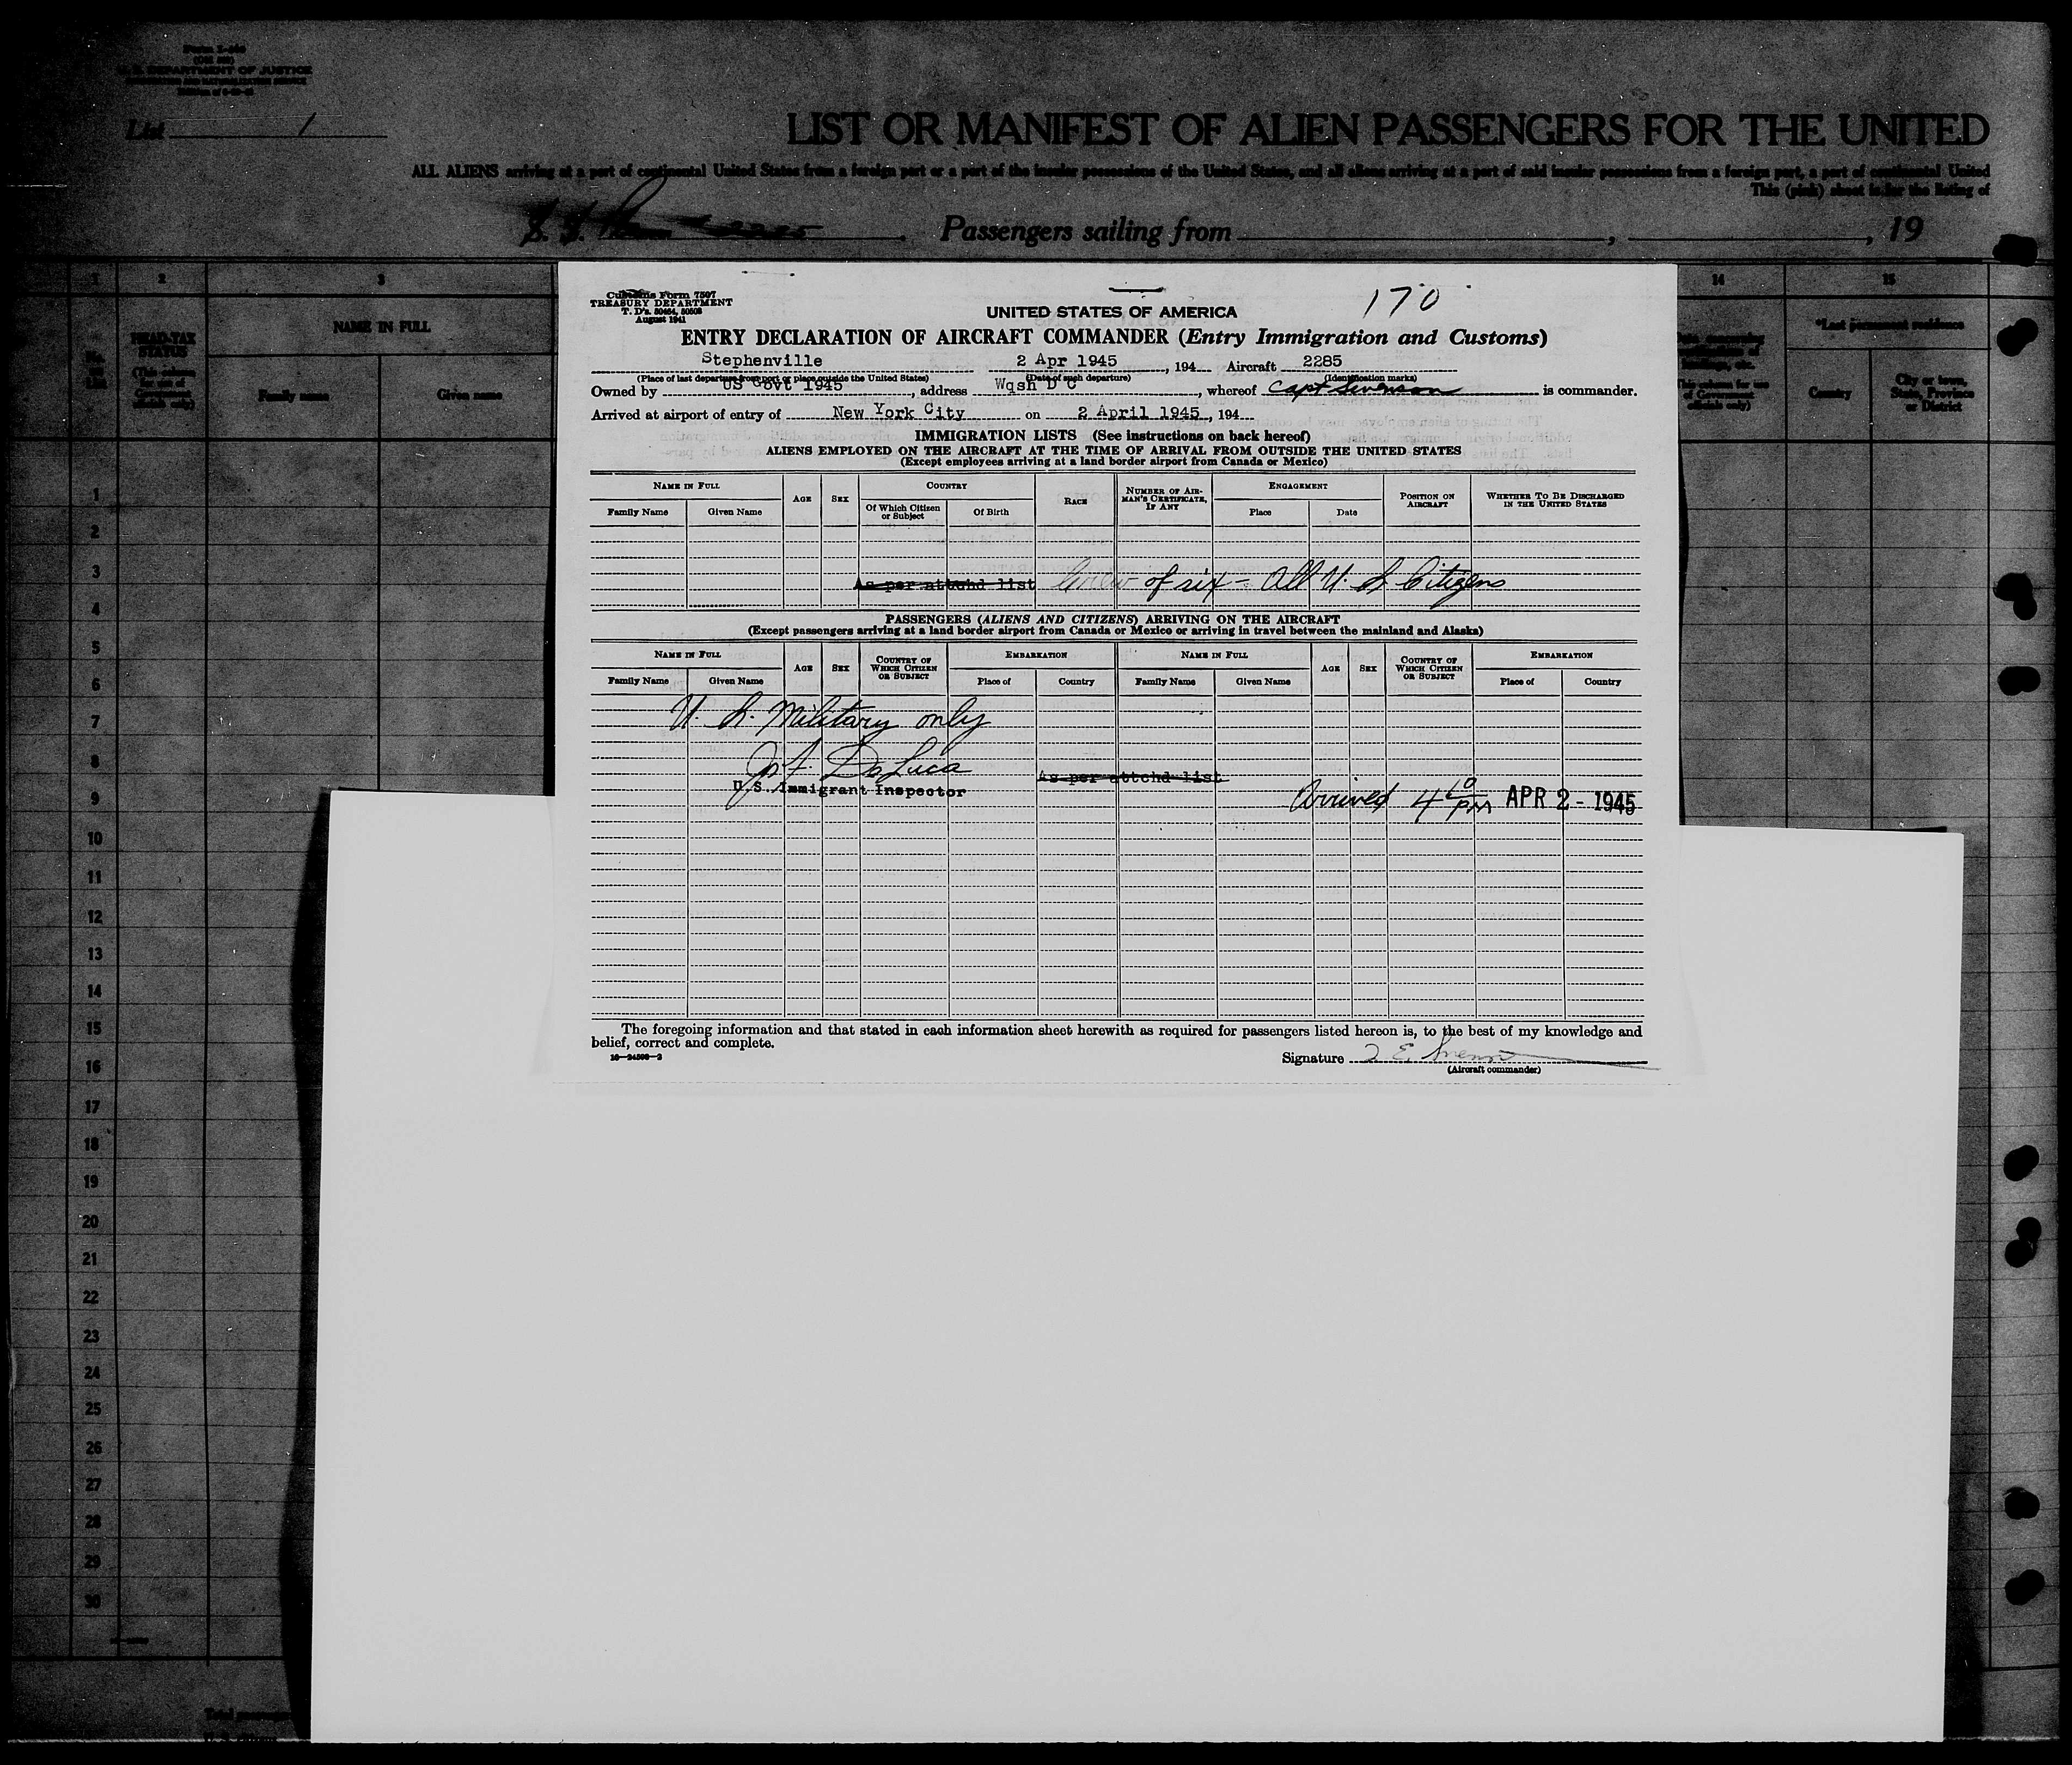 List 1
LIST OR MANIFEST OF ALIEN PASSENGERS FOR THE UNITED
ALL ALIENS arriving at a port of continental United States from a foreign port or a port of the insular possessions of the United States, and all aliens arriving at a port of said insular possessions from a foreign port, a port of continental United
This (pink) sheet is for the listing of
Passengers sailing from , , 19
1 2 3 14 15
HEAD-TAX STATUS
NAME IN FULL
Family name Given name
*Last permanent residence
Country City or town, State, Province or District
Customs Form 7507
TREASURY DEPARTMENT
T. D's. 50464, 50503
August 1941
170
UNITED STATES OF AMERICA
ENTRY DECLARATION OF AIRCRAFT COMMANDER (Entry Immigration and Customs)
Stephenville 2 Apr 1945, 194 Aircraft 2285
(Place of last departure from port or place outside the United States) (Date of such departure) (Identification marks)
Owned by US Govt 1945, address Wqsh D C, whereof Capt. is commander.
Arrived at airport of entry of New York City on 2 April 1945, 194
IMMIGRATION LISTS (See instructions on back hereof)
ALIENS EMPLOYED ON THE AIRCRAFT AT THE TIME OF ARRIVAL FROM OUTSIDE THE UNITED STATES
(Except employees arriving at a land border airport from Canada or Mexico)
NAME IN FULL AGE SEX COUNTRY RACE NUMBER OF AIRMAN'S CERTIFICATE, IF ANY ENGAGEMENT POSITION ON AIRCRAFT WHETHER TO BE DISCHARGED IN THE UNITED STATES
Family Name Given Name Of Which Citizen or Subject Of Birth Place Date
As per attchd list Crew of six - All U. S Citizens
PASSENGERS (ALIENS AND CITIZENS) ARRIVING ON THE AIRCRAFT
(Except passengers arriving at a land border airport from Canada or Mexico or arriving in travel between the mainland and Alaska)
NAME IN FULL AGE SEX COUNTRY OF WHICH CITIZEN OR SUBJECT EMBARKATION NAME IN FULL AGE SEX COUNTRY OF WHICH CITIZEN OR SUBJECT EMBARKATION
Family Name Given Name Place of Country Family Name Given Name Place of Country
U. S. Military only
DeLuca
As per attchd list
U.S. Immigrant Inspector
Arrived 4 10 PM APR 2 - 1945
The foregoing information and that stated in each information sheet herewith as required for passengers listed hereon is, to the best of my knowledge and
belief, correct and complete.
16—24598-2
Signature
(Aircraft commander)
1
2
3
4
5
6
7
8
9
10
11
12
13
14
15
16
17
18
19
20
21
22
23
24
25
26
27
28
29
30